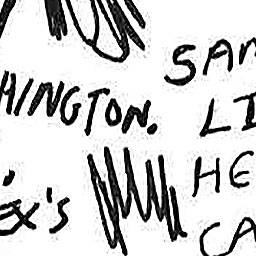 HINGTON.
ex's
SAM
LI
HE
CA